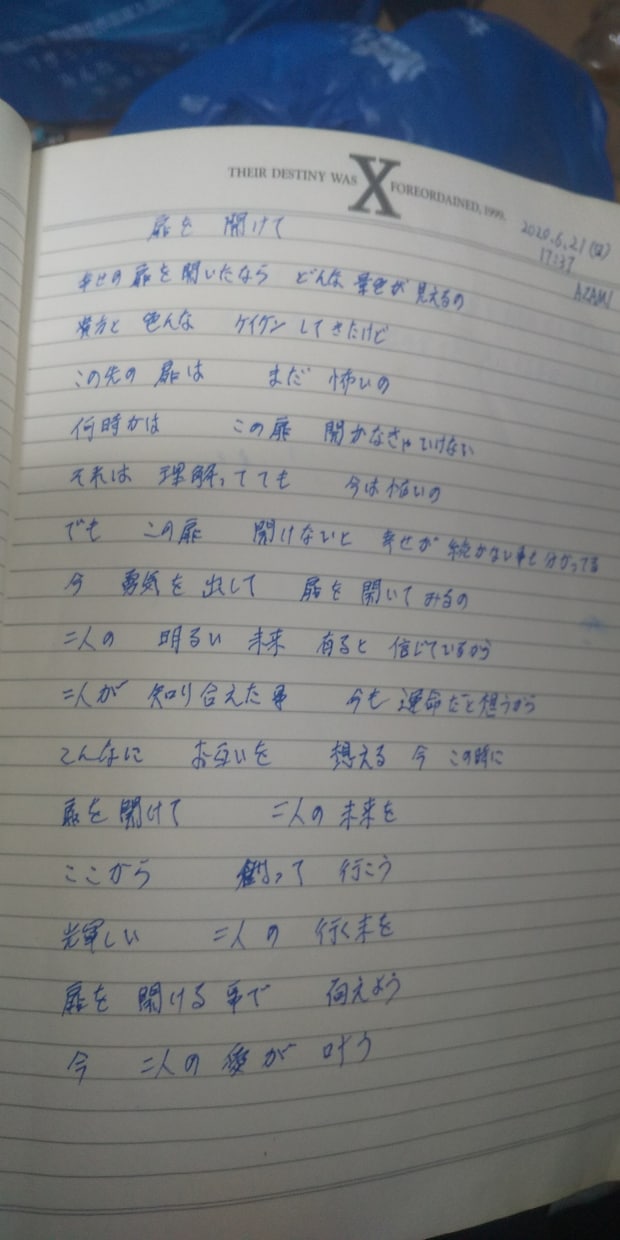 THEIR DESTINY WAS X FOREORDAINED, 1999.
2020.6.21(日)
17:37
AZAMI
扉を 開けて
幸せの 扉を 開いたなら どんな 景色が 見えるの
貴方と 色んな ケイケン してきたけど
この先の 扉は まだ 怖いの
何時かは この扉 開かなきゃいけない
それは 理解ってても 今は怖いの
でも この扉 開けないと 幸せが 続かない事も 分かってる
今 勇気を 出して 扉を 開いて みるの
二人の 明るい 未来 有ると 信じているから
二人が 知り合えた事 今も 運命だと想うから
こんなに お互いを 想える 今 この時に
扉を 開けて 二人の 未来を
ここから 創って 行こう
光輝しい 二人の 行く末を
扉を 開ける 事で 伺えよう
今 二人の 愛が 叶う